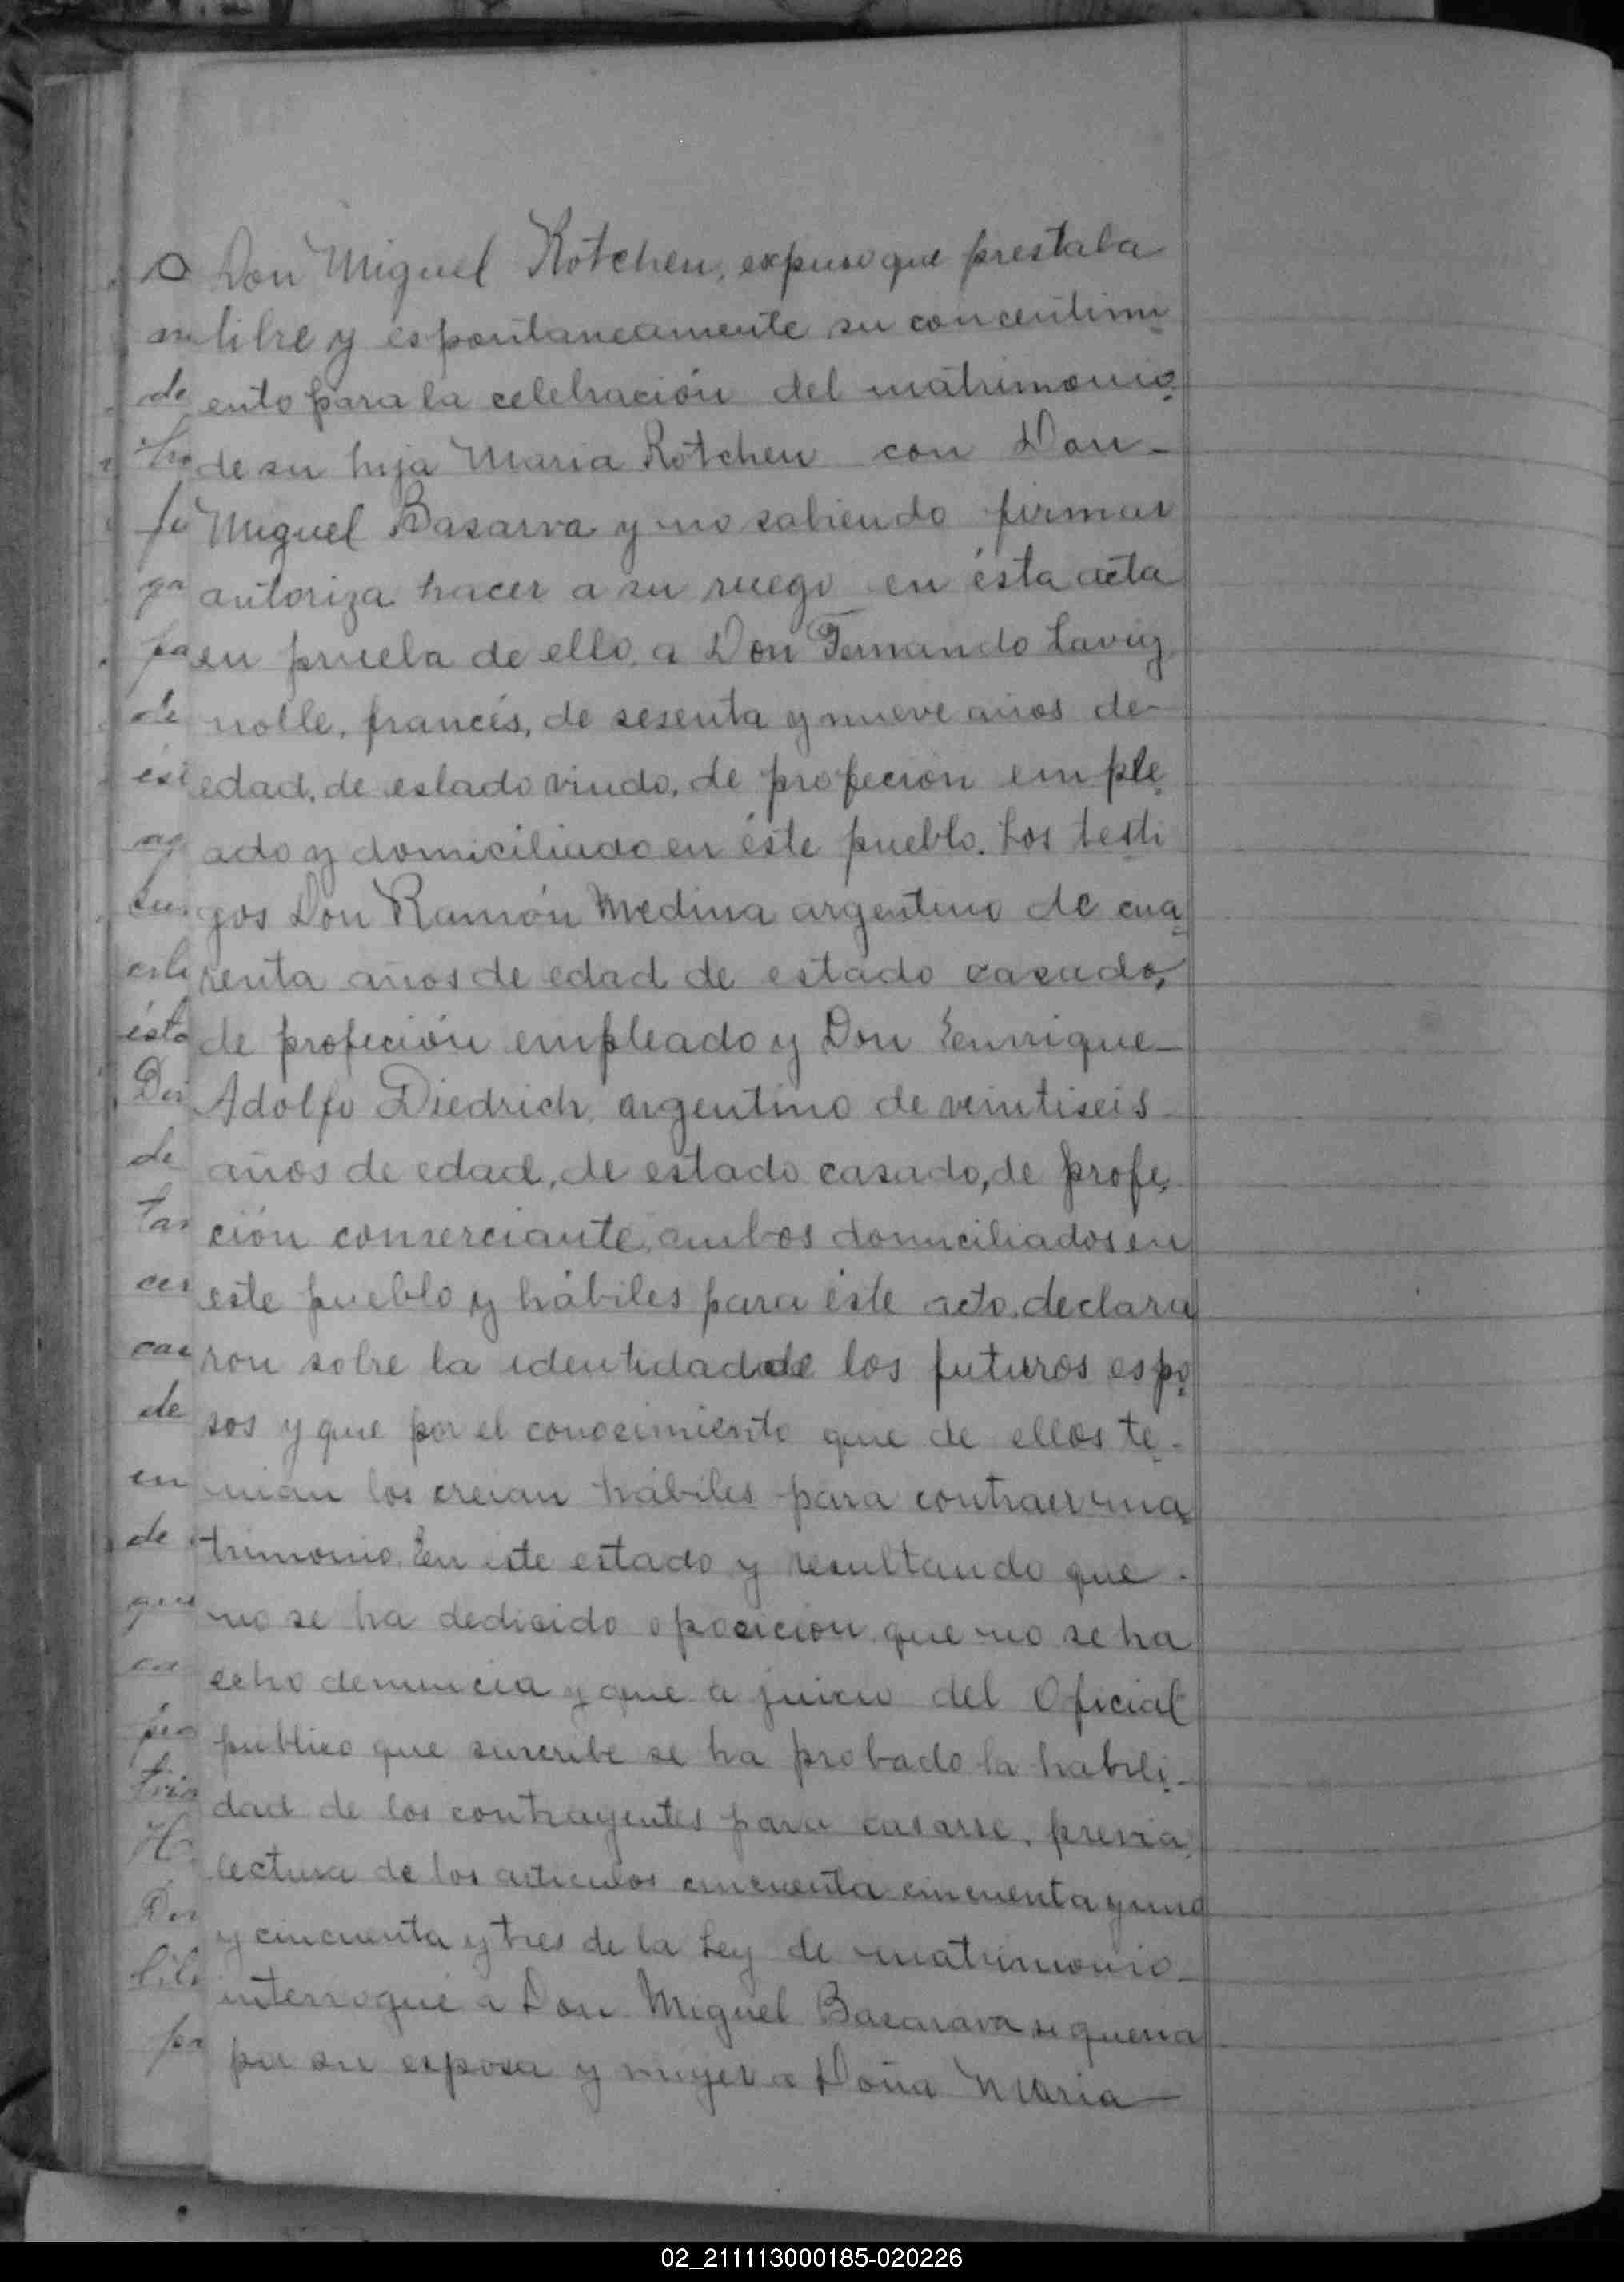 Don Miguel Kotchen, expuso que prestaba
libre y espontaneamente su concentimi
ento para la celebración del matrimonio
de su hija Maria Kotchen con Don -
Miguel Basarva y no sabiendo firmar
autoriza hacer a su ruego en ésta acta
en prueba de ello, a Don Fernando Lavig
nolle, francés, de sesenta y nueve años de
edad, de estado viudo, de profeción emple
ado y domiciliado en éste pueblo. Los testi
gos Don Ramón Medina argentino de cua
renta años de edad de estado casado,
de profeción empleado y Don Enrrique
Adolfo Diedrich, argentino de veintiseis
años de edad, de estado casado, de profe
ción comerciante, ambos domiciliados en
este pueblo y hábiles para éste acto, declara
ron sobre la identidad de los futuros espo
sos y que por el conocimiento que de ellos te-
nian los creian hábiles para contraer ma
trimonio. En este estado y resultando que
no se ha dedicido oposicion, que no se ha
echo denuncia y que a juicio del Oficial
publico que suscribe se ha probado la habili-
dad de los contrayentes para casarse, previa
lectura de los articulos cincuenta cincuenta y uno
y cincuenta y tres de la Ley de matrimonio
interrogué a Don Miguel Basarava si queria
por su esposa y mujer a Doña Maria
de
fu
pa
de
ésta
de
en
de
02_211113000185-020226